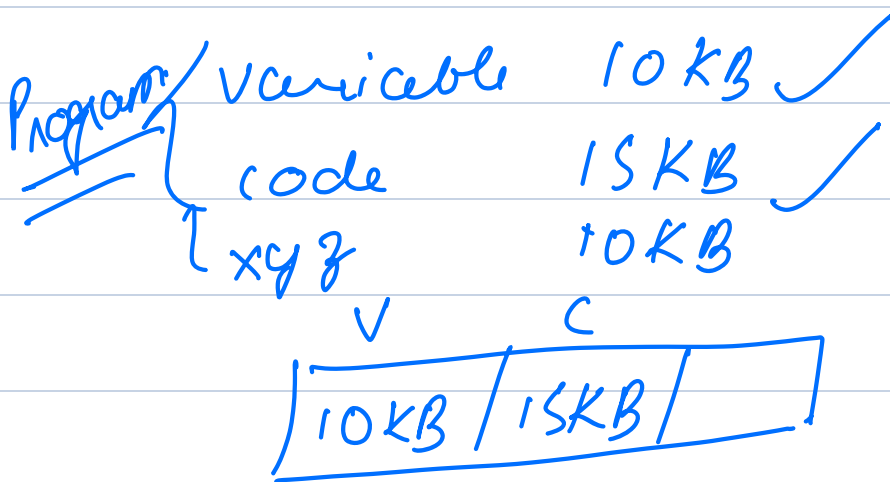 Program variable 10 KB
code 15 KB
xyz 10 KB
V C
10 KB 15 KB